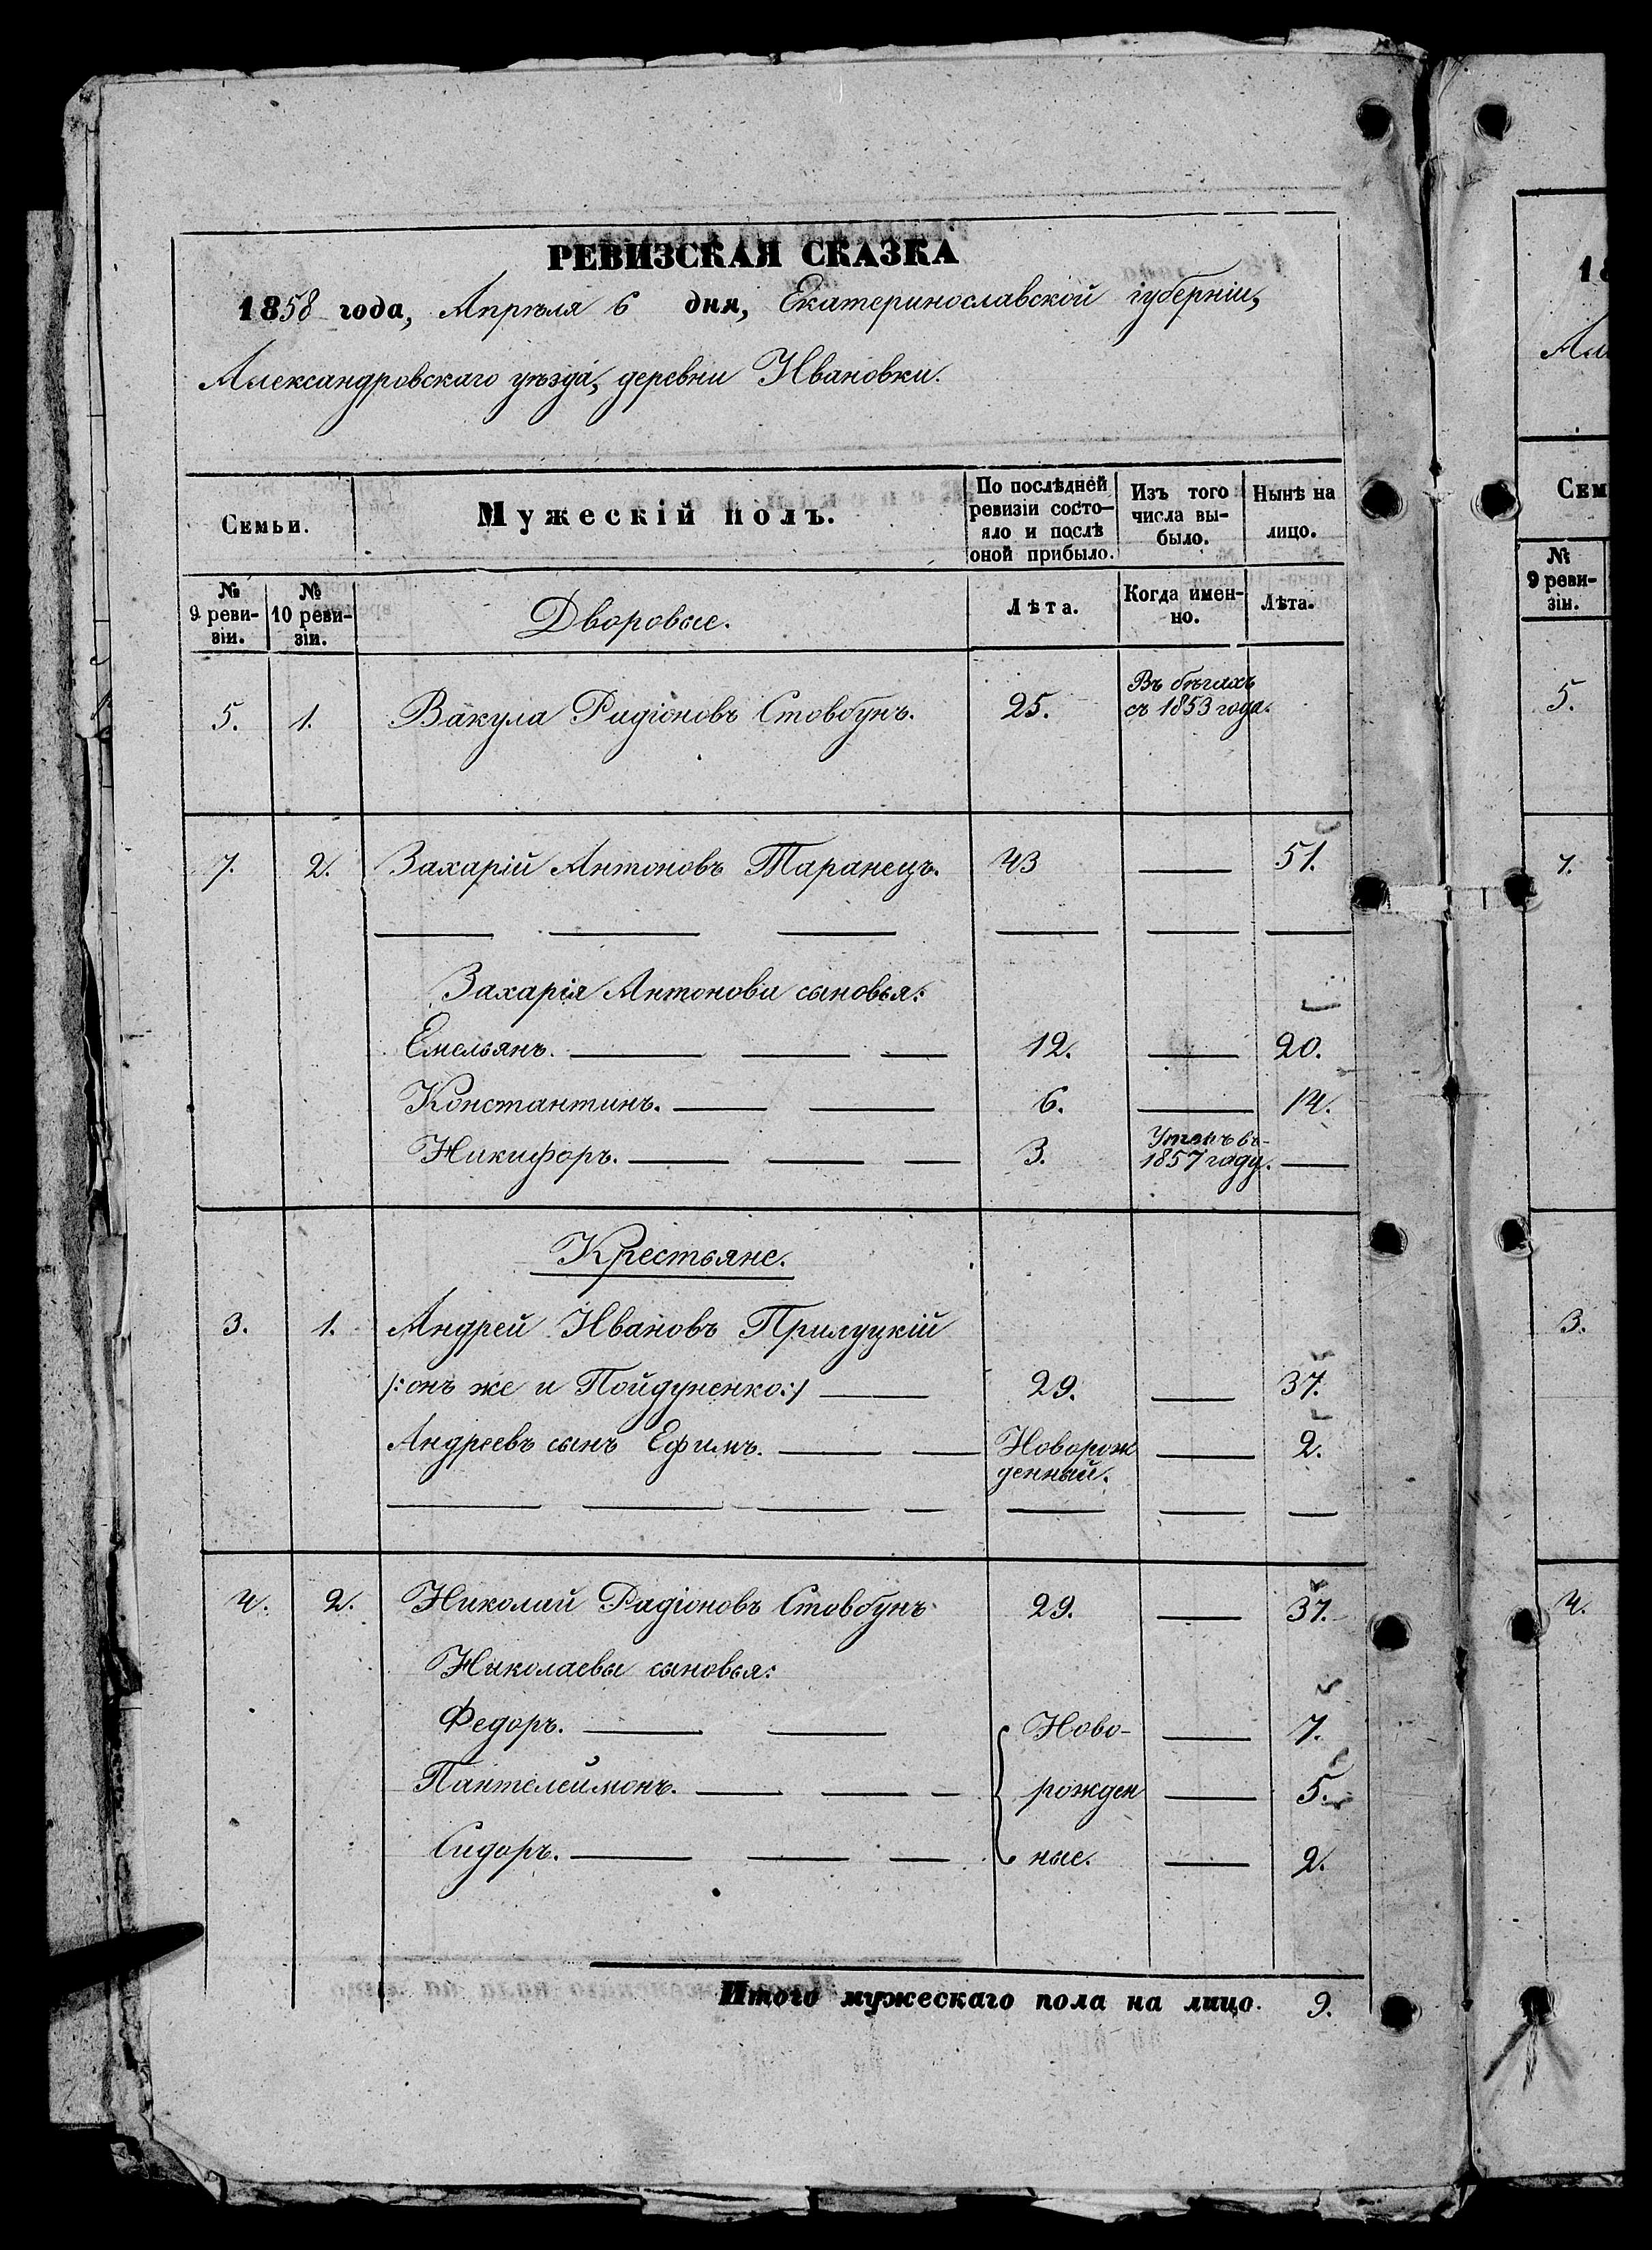 РЕВИЗСКАЯ СКАЗКА
1858 года, Апрѣля 6 дня, Екатеринославской губерніи,
Александровскаго уѣзда, деревни Ивановки.
Семьи.
Мужескій полъ.
По послѣдней
ревизіи состо-
яло и послѣ
оной прибыло.
Изъ того
числа вы-
было.
Нынѣ на
лицо.
№
9 реви-
зіи.
№
10 реви-
зіи.
Дворовые.
Лѣта.
Когда имен-
но.
Лѣта.
5. 1. Вакула Радіоновъ Стовбунъ. 25. Въ бѣгахъ
съ 1853 года.
7. 2. Захарій Антоновъ Таранецъ. 43 — 51.
Захарія Антонова сыновья:
Емельянъ. — 12. — 20.
Константинъ. — 6. — 14.
Никифоръ. — 3. Умеръ въ
1857 году. —
Крестьяне.
3. 1. Андрей Ивановъ Прилуцкій
/:онъ же и Пойдуненко:/ — 29. — 37.
Андреевъ сынъ Ефимъ. — Новорож — 2.
денный.
4. 2. Николай Радіоновъ Стовбунъ 29. — 37.
Николаевы сыновья:
Федоръ. — Ново- — 7.
Пантелеймонъ. — рожден — 5.
Сидоръ. — ные. — 2.
Итого мужескаго пола на лицо. 9.
18
Сем
№
9 реви-
зіи.
5.
7.
3.
4.